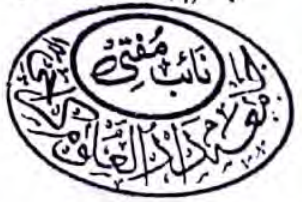 نائب مفتی
جامعہ دارالعلوم کراچی